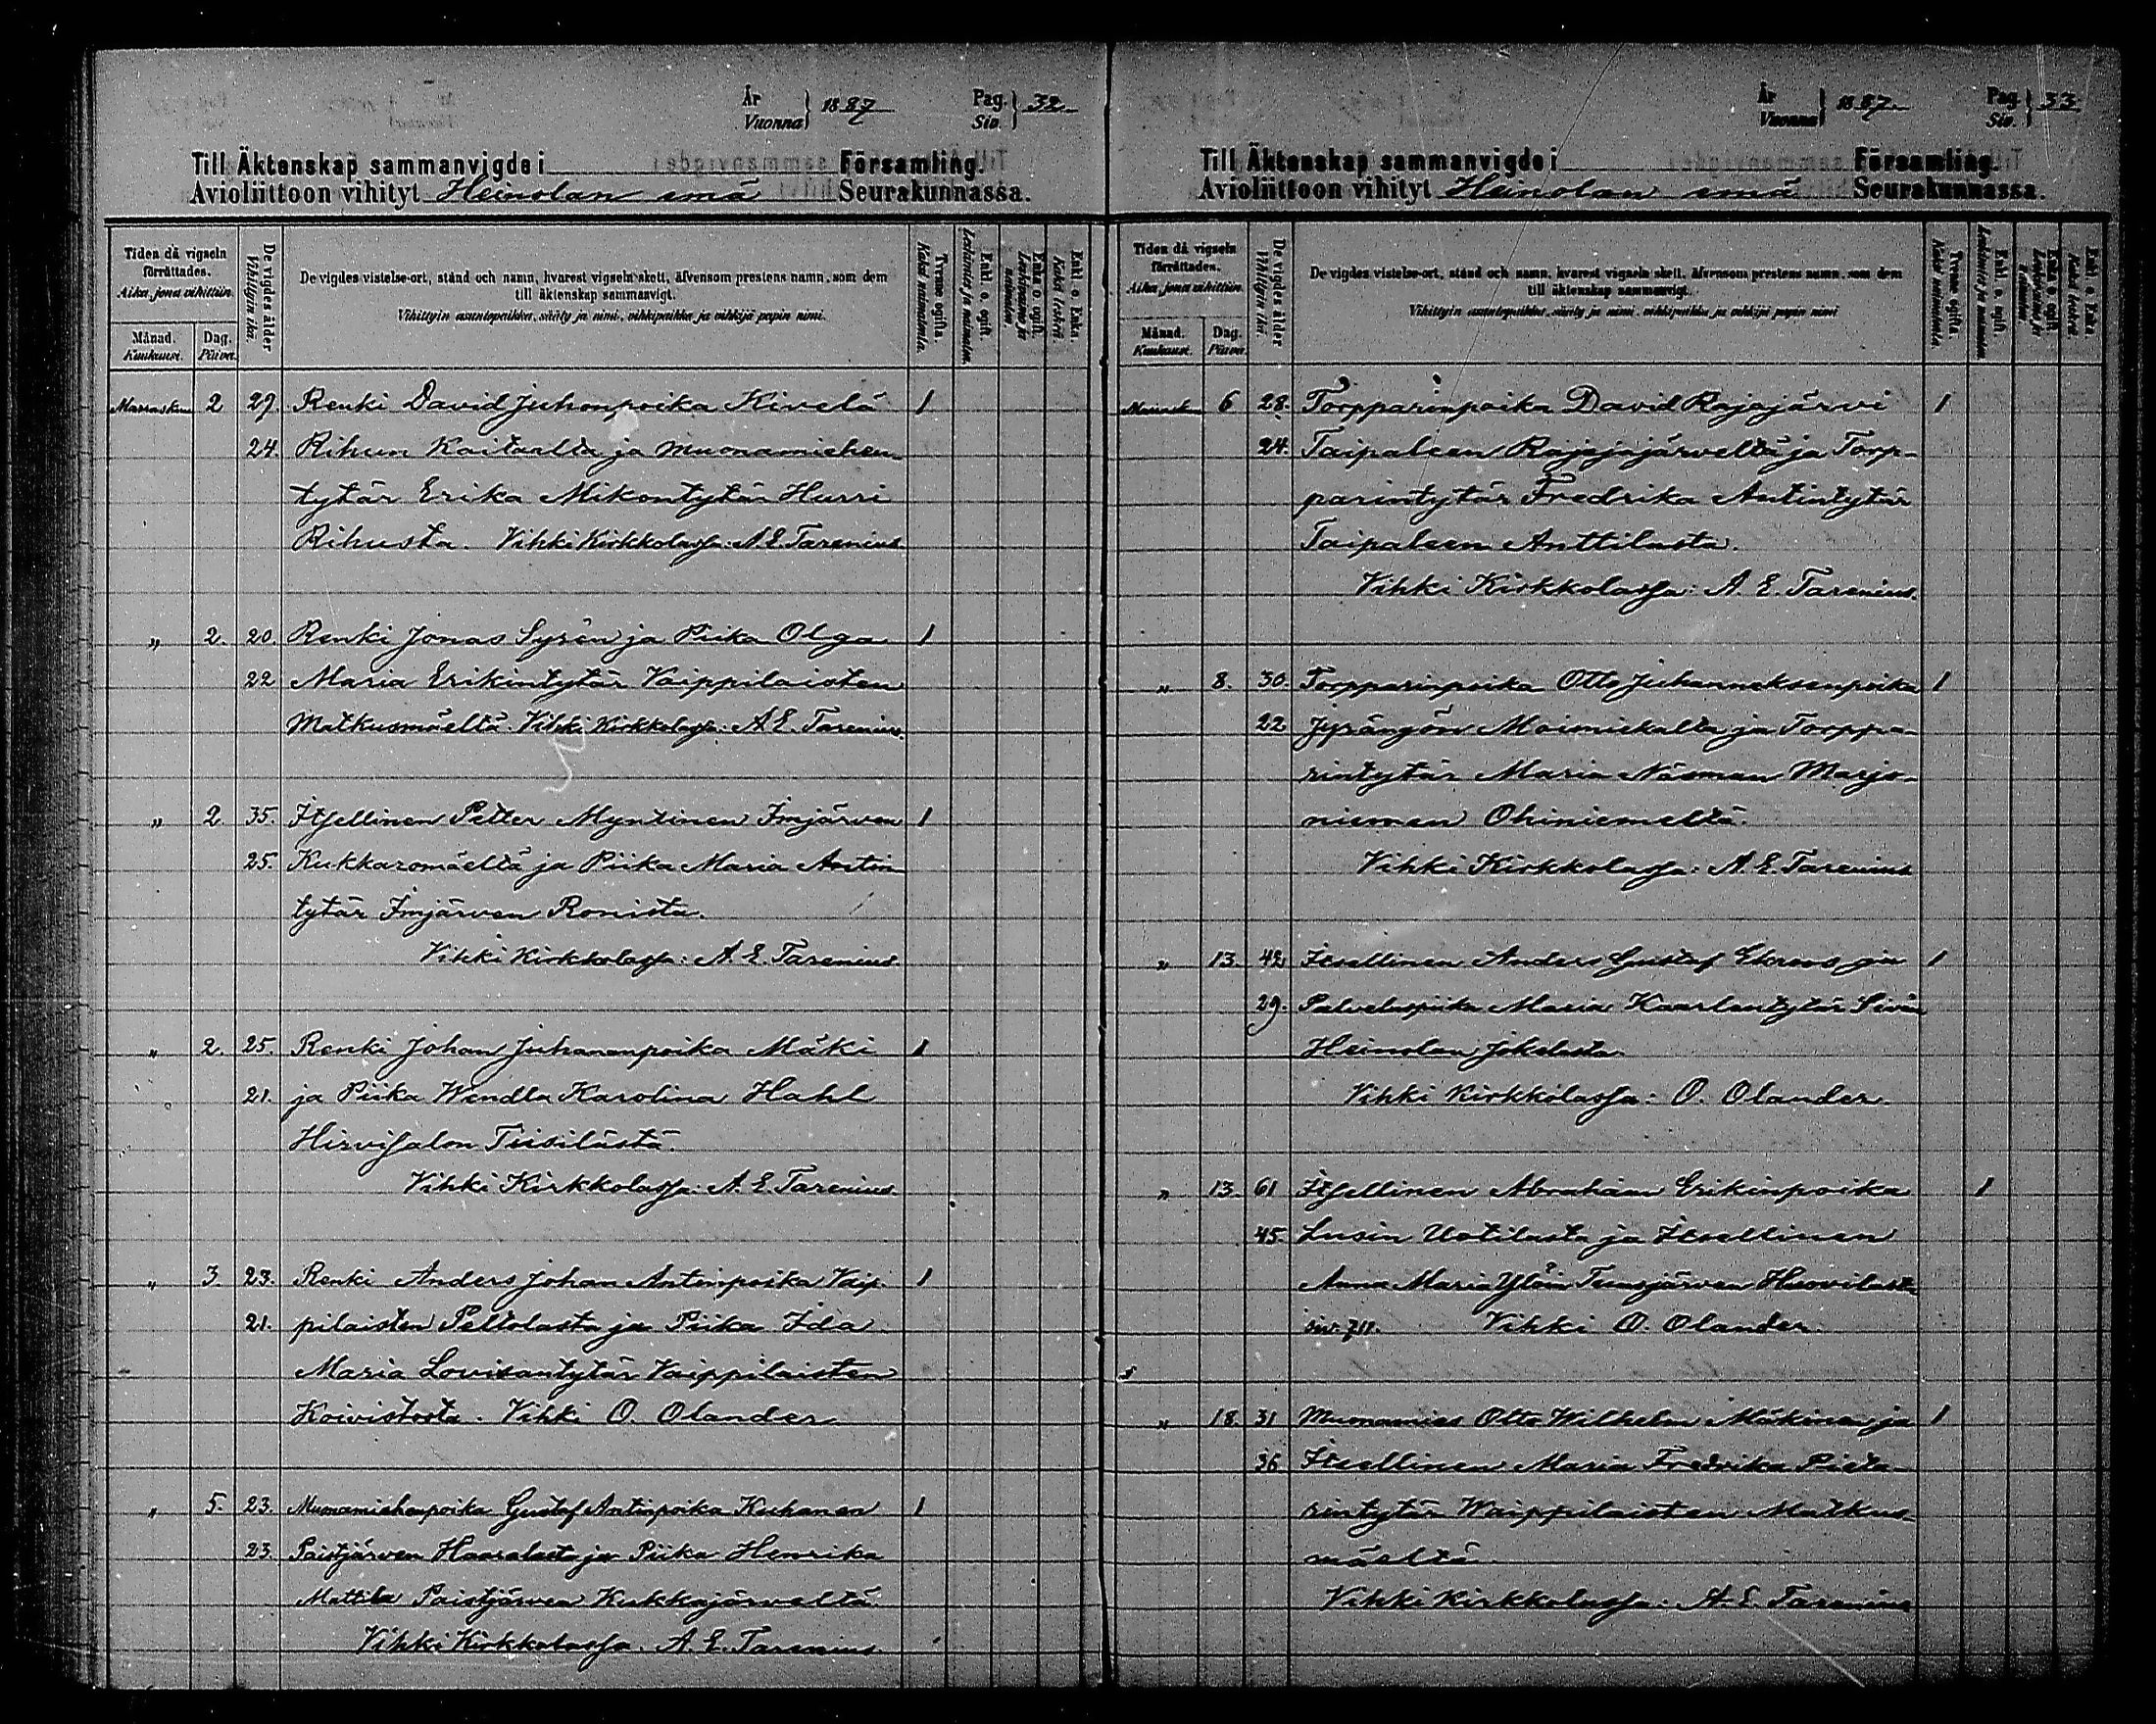 År
Vuonna } 1887 Pag.
Siv. } 32
Till Äktenskap sammanvigde i Församling.
Avioliittoon vihityt Heinolan emä Seurakunnassa.
Tiden då vigseln förrättades.
Aika, jona vihittiin.
Månad.
Kuukausi.
Dag.
Päivä.
De vigdes ålder
Vihittyin ikä.
De vigdes vistelse-ort, stånd och namn, hvarest vigseln skett, äfvensom prestens namn, som dem
till äktenskap sammanvigt.
Vihittyin asuntopaikka, sääty ja nimi, vihkipaikka ja vihkijä papin nimi.
Tvenne ogifta.
Kaksi naimatonta.
Enkl. o. ogift.
Leskimies ja naimaton.
Enka o. ogift.
Leskivaimo ja naimaton.
Enkl. o. Enka.
Kaksi leskeä.
Marraskuu 2 29. Renki David Juhonpoika Kivelä 1
24. Rihun Kaitaalta ja muonamiehen
tytär Erika Mikontytär Hurri
Rihusta. Vihki Kirkkolassa: A. E. Tarenius
" 2. 20. Renki Jonas Syrén ja Piika Olga 1
22 Maria Erikintytär Vaippilaisten
Matkusmäeltä. Vihki Kirkkolassa: A. E. Tarenius.
" 2. 35. Itsellinen Petter Myntinen Imjärven 1
25. Kukkaromäeltä ja Piika Maria Antin
tytär Imjärven Ronista.
Vihki Kirkkolassa: A. E. Tarenius.
" 2. 25. Renki Johan Juhananpoika Mäki 1
21. ja Piika Wendla Karolina Hahl
Hirvisalon Tiisilästä.
Vihki Kirkkolassa: A. E. Tarenius.
" 3 23. Renki Anders Johan Antinpoika Vaip- 1
21. pilaisten Peltolasta ja Piika Ida
Maria Lovisantytär Vaippilaisten
Koivistosta. Vihki O. Olander
" 5. 23. Muonamiehenpoika Gustaf Antinpoika Kuhanen 1
23. Paistjärven Haaralasta ja Piika Henrika
Mattila Paistjärven Kukkajärveltä.
Vihki Kirkkolassa. A. E. Tarenius
År
Vuonna } 1887. Pag.
Siv. } 33
Till Äktenskap sammanvigde i Församling.
Avioliittoon vihityt Heinolan emä Seurakunnassa.
Tiden då vigseln förrättades.
Aika, jona vihittiin.
Månad.
Kuukausi.
Dag.
Päivä.
De vigdes ålder
Vihittyin ikä.
De vigdes vistelse-ort, stånd och namn, hvarest vigseln skett, äfvensom prestens namn, som dem
till äktenskap sammanvigt.
Vihittyin asuntopaikka, sääty ja nimi, vihkipaikka ja vihkijä papin nimi
Tvenne ogifta.
Kaksi naimatonta.
Enkl. o. ogift.
Leskimies ja naimaton.
Enka o. ogift.
Leskivaimo ja naimaton.
Enkl. o. Enka.
Kaksi leskeä.
6 28. Torpparinpoika David Rajajärvi 1
24. Taipaleen Rajajärveltä ja Torp-
parintytär Fredrika Antintytär
Taipaleen Anttilasta.
Vihki Kirkkolassa: A. E. Tarenius.
" 8. 30. Torpparinpoika Otto Juhanneksenpoika 1
22 Jyrängön ja Torppa-
rintytär Maria Näsman Marjo-
niemen Ohiniemeltä.
Vihki Kirkkolassa: A. E. Tarenius
" 13. 42 Itsellinen Anders Gustaf Ekroos ja 1
29. Palveluspiika Maria Kaarlentytär
Heinolan Jokelasta.
Vihki Kirkkolassa: O. Olander.
" 13. 61 Itsellinen Abraham Erikinpoika 1
45. Lusin Uotilasta ja Itsellinen
Anna Maria Huovilasta
siv. 711. Vihki O. Olander.
" 18. 31 Muonamies Otto Wilhelm Mäkinen ja 1
36. Itsellinen Maria Fredrika Pieta-
rintytär Waippilaisten Matkus-
mäeltä.
Vihki Kirkkolassa: A. E. Tarenius